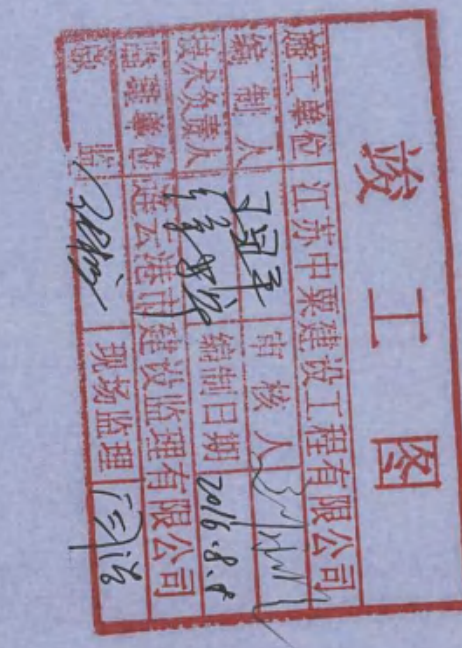 竣工图
施工单位 江苏中粟建设工程有限公司
编制人 审核人
技术负责人 编制日期 2016.8.8
监理单位 连云港市建设监理有限公司
总监 现场监理